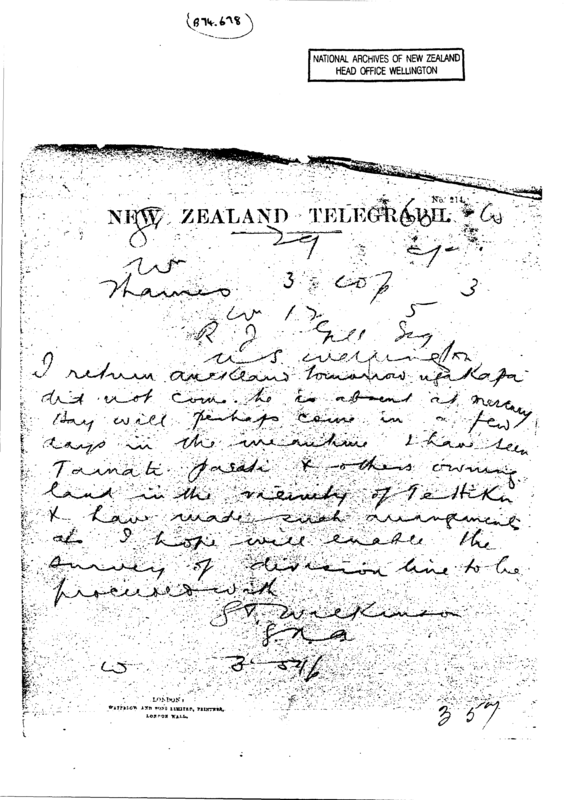 (B74.678)
NATIONAL ARCHIVES OF NEW ZEALAND
HEAD OFFICE WELLINGTON
No. 214
NEW ZEALAND TELEGRAPH.
29
Thames 3 5
R J Gill Esq
U S Wellington
I return auckland tomorrow ngakapa
did not come. he is absent at mercury
Bay will perhaps come in a few
days in the meantime I have seen
Tamati & others owning
land in the vicinity of
& have made such arrangements
as I hope will enable the
survey of division line to be
proceeded with
G T. Wilkinson
LONDON:
WATERLOW AND SONS LIMITED, PRINTERS,
LONDON WALL.